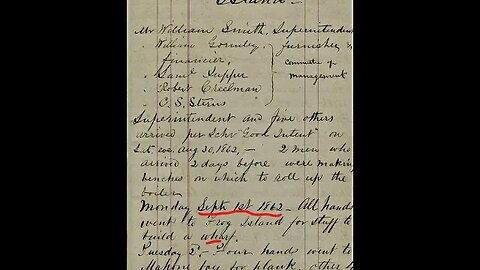 Island
Mr William Smith, Superintendent
" William Gormley, furnisher &
financier,
" Saml Tupper
" Robert Creelman
" C. S. Sterns
Committee of
management
Superintendent and five others
arrived per Schr "Good Intent" on
Sat. eve. Aug 30, 1862, - 2 men who
arrived 2 days before were making
benches on which to roll up the
boiler
Monday Sept 1st 1862 - All hands
went to Frog Island for stuff to
build a wharf.
Tuesday 2d - Four hands went to
Mahone Bay for plank other 4